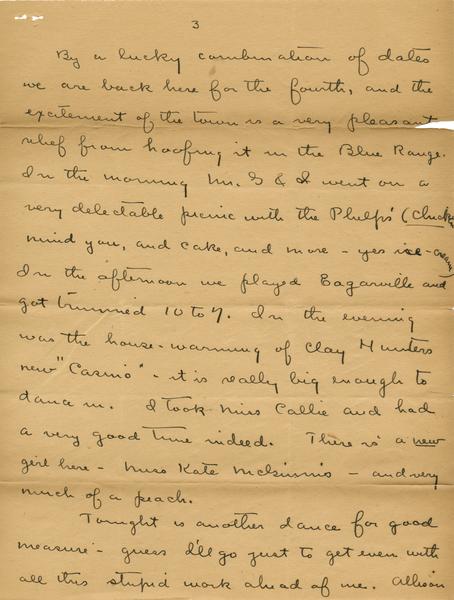 3
By a lucky combination of dates
we are back here for the fourth, and the
excitement of the town is a very pleasant
relief from hoofing it in the Blue Range.
In the morning Mr. G & I went on a
very delectable picnic with the Phelps' (Chicken
mind you, and cake, and more - yes ice-cream)
In the afternoon we played Eagarville and
got trimmed 10 to 7. In the evening
was the house-warming of Clay Hunters
new "Casino" - it is really big enough to
dance in. I took Miss Callie and had
a very good time indeed. There is a new
girl here - Miss Kate - and very
much of a peach.
Tonight is another dance for good
measure - guess I'll go just to get even with
all this stupid work ahead of me. Allison